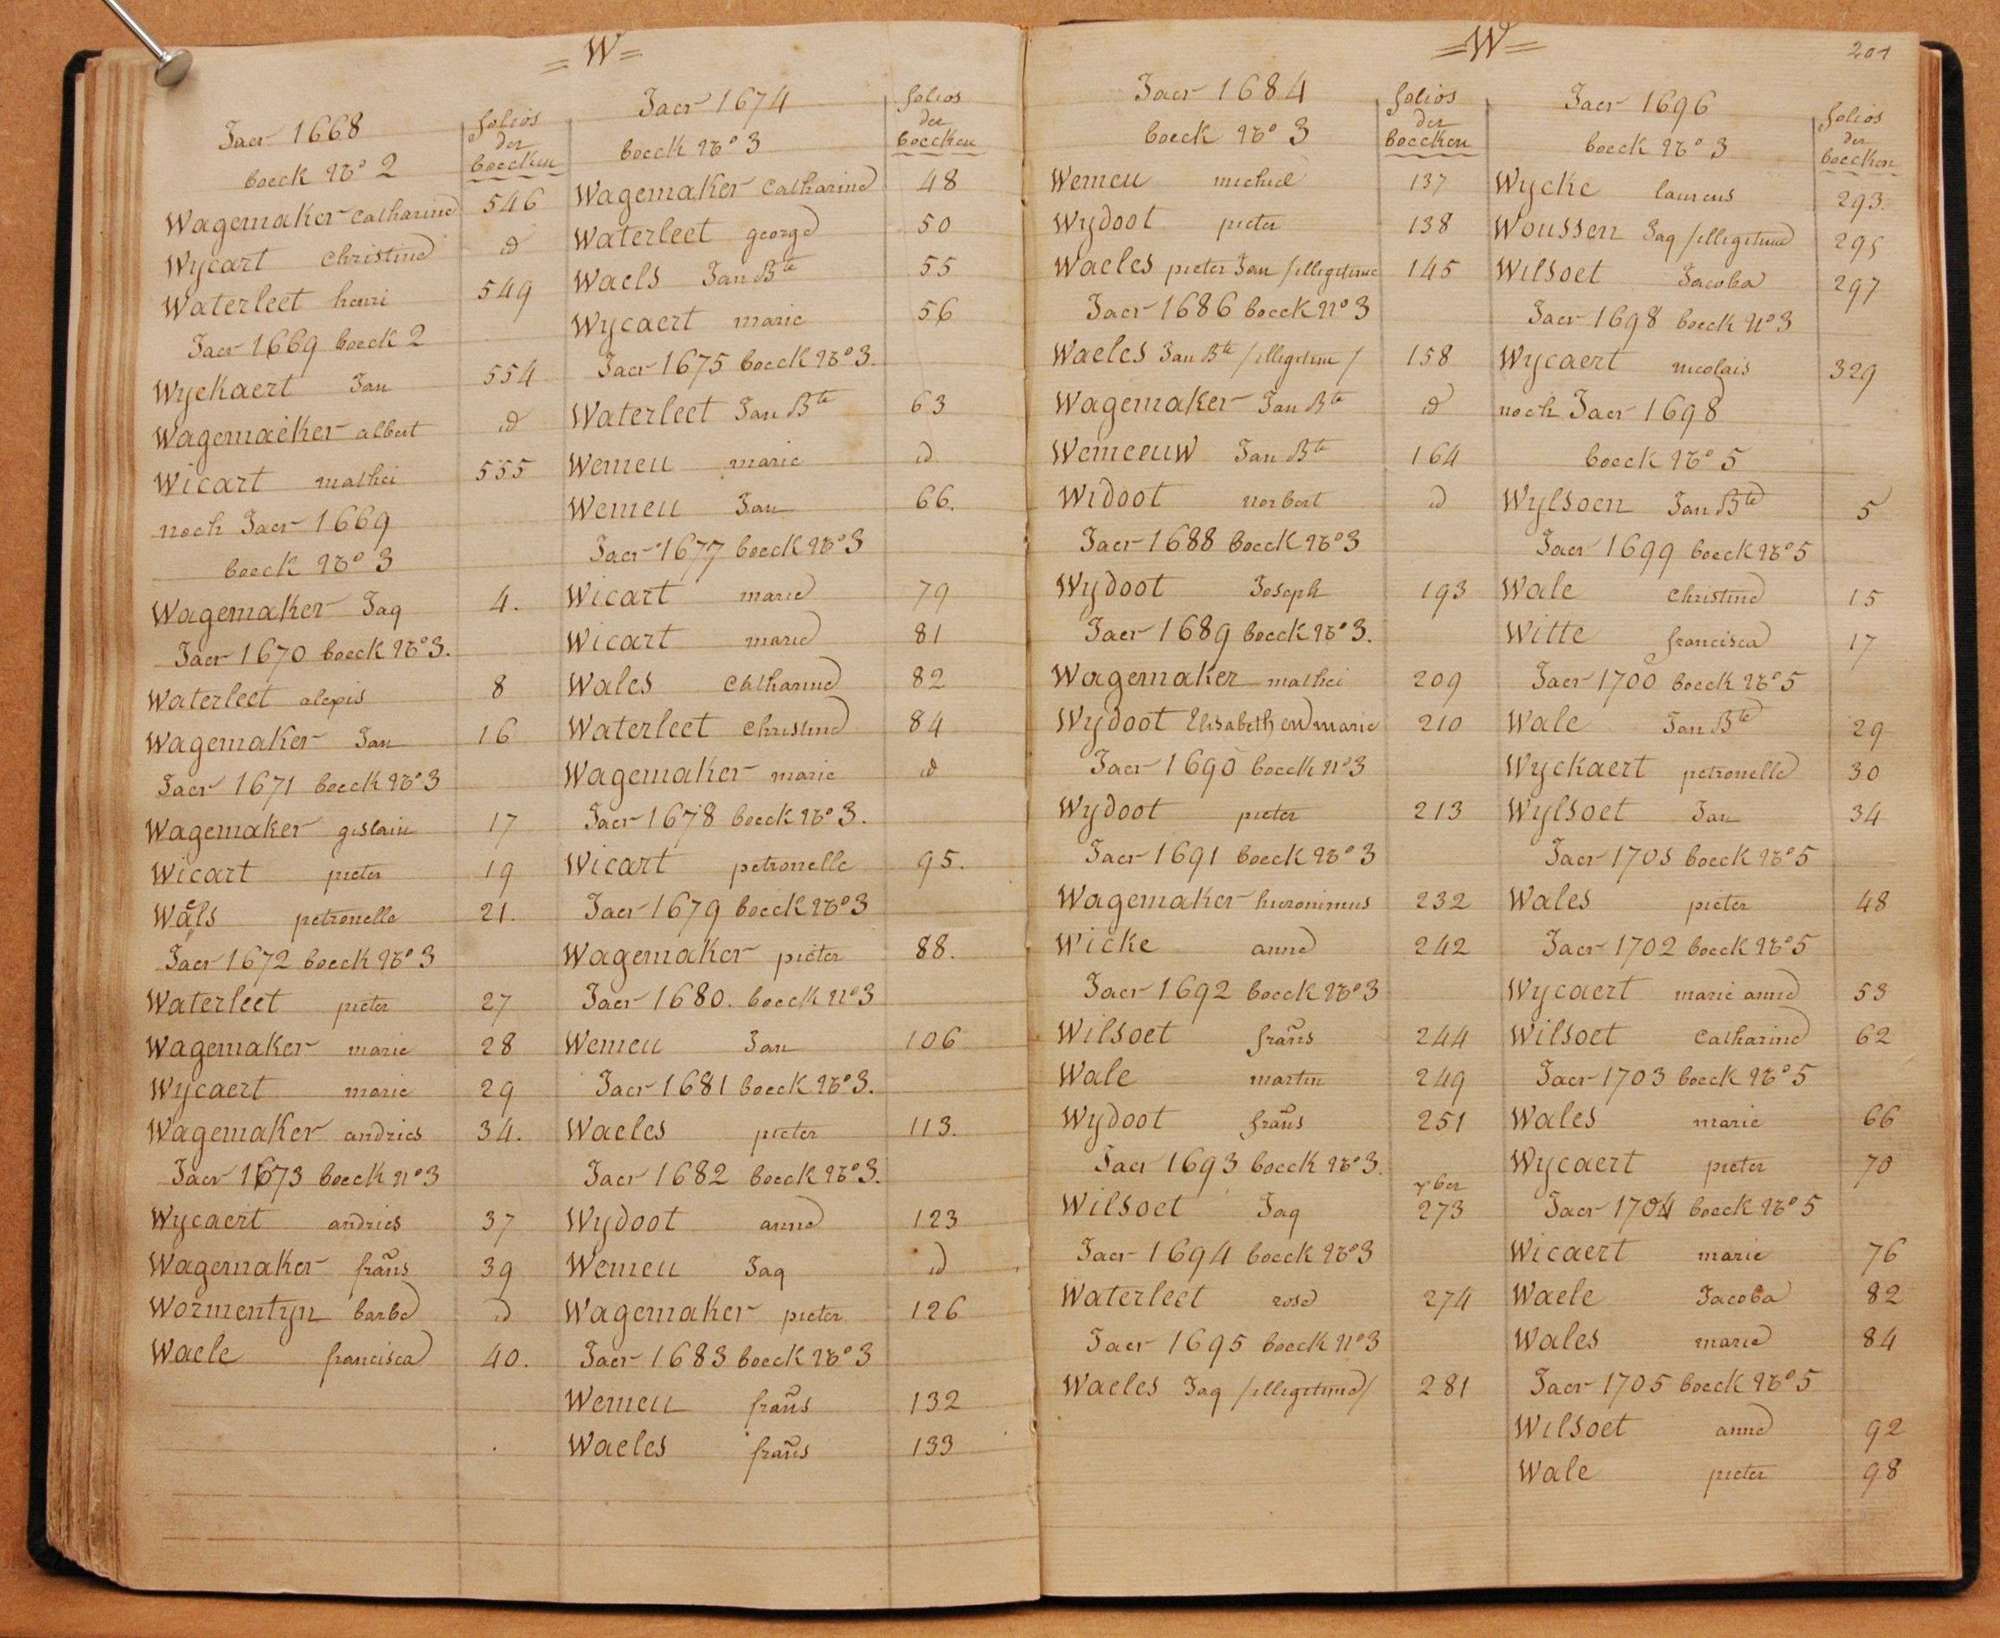 = W =
Jaer 1668
boeck No 2
folios
der
boecken
Wagemaker Catharine 546
Wycart Christine id
Waterleet henri 549
Jaer 1669 boeck 2
Wyckaert Jan 554
Wagemaeker albert id
Wicart mathei 555
noch Jaer 1669
boeck No 3
Wagemaker Jaq 4.
Jaer 1670 boeck No 3.
Waterleet alexis 8
Wagemaker Jan 16
Jaer 1671 boeck No 3
Wagemaker gislain 17
Wicart pieter 19
Waels petronelle 21.
Jaer 1672 boeck No 3
Waterleet pieter 27
Wagemaker marie 28
Wycaert marie 29
Wagemaker andries 34.
Jaer 1673 boeck no 3
Wycaert andries 37
Wagemaker frans 39
Wormentyn barbe id
Waele francisca 40.
Jaer 1674
boeck No 3
folios
der
boecken
Wagemaker Catharine 48
Waterleet george 50
Waels Jan Bte 55
Wycaert marie 56
Jaer 1675 boeck No 3.
Waterleet Jan Bte 63
Wemeu marie id
Wemeu Jan 66.
Jaer 1677 boeck No 3
Wicart marie 79
Wicart marie 81
Wales Catharine 82
Waterleet Christine 84
Wagemaker marie id
Jaer 1678 boeck No 3.
Wicart petronelle 95.
Jaer 1679 boeck No 3
Wagemaker pieter 88.
Jaer 1680. boeck no 3
Wemeu Jan 106
Jaer 1681 boeck No 3.
Waeles pieter 113.
Jaer 1682 boeck No 3.
Wydoot anne 123
Wemeu Jaq id
Wagemaker pieter 126
Jaer 1683 boeck No 3
Wemeu frans 132
Waeles frans 133
= W =
201
Jaer 1684
boeck No 3
folios
der
boecken
Wemeu michiel 137
Wydoot pieter 138
Waeles pieter Jan /illegitime 145
Jaer 1686 boeck no 3
Waeles Jan Bte /illegitime/ 158
Wagemaker Jan Bte id
Wemeeuw Jan Bte 164
Widoot norbert id
Jaer 1688 boeck No 3
Wydoot Joseph 193
Jaer 1689 boeck No 3.
Wagemaker mathei 209
Wydoot Elisabeth en marie 210
Jaer 1690 boeck no 3
Wydoot pieter 213
Jaer 1691 boeck No 3
Wagemaker hieronimus 232
Wicke anne 242
Jaer 1692 boeck No 3
Wilsoet frans 244
Wale martin 249
Wydoot frans 251
Jaer 1693 boeck No 3.
7ber
Wilsoet Jaq 273
Jaer 1694 boeck No 3
Waterleet rose 274
Jaer 1695 boeck no 3
Waeles Jaq /illegitime/ 281
Jaer 1696
boeck No 3
folios
der
boecken
Wycke laurens 293
Woussen Jaq /illegitime 295
Wilsoet Jacoba 297
Jaer 1698 boeck no 3
Wycaert nicolais 329
noch Jaer 1698
boeck No 5
Wylsoen Jan Bte 5
Jaer 1699 boeck No 5
Wale Christine 15
Witte francisca 17
Jaer 1700 boeck No 5
Wale Jan Bte 29
Wyckaert petronelle 30
Wylsoet Jan 34
Jaer 1701 boeck No 5
Wales pieter 48
Jaer 1702 boeck No 5
Wycaert marie anne 53
Wilsoet Catharine 62
Jaer 1703 boeck No 5
Wales marie 66
Wycaert pieter 70
Jaer 1704 boeck No 5
Wicaert marie 76
Waele Jacoba 82
Wales marie 84
Jaer 1705 boeck No 5
Wilsoet anne 92
Wale pieter 98